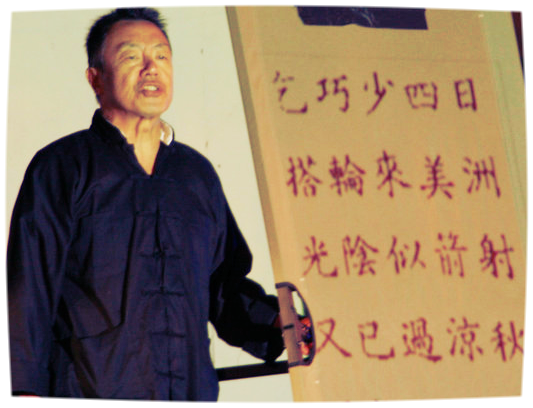 乞巧少四日
搭輪來美洲
光陰似箭射
又已過涼秋